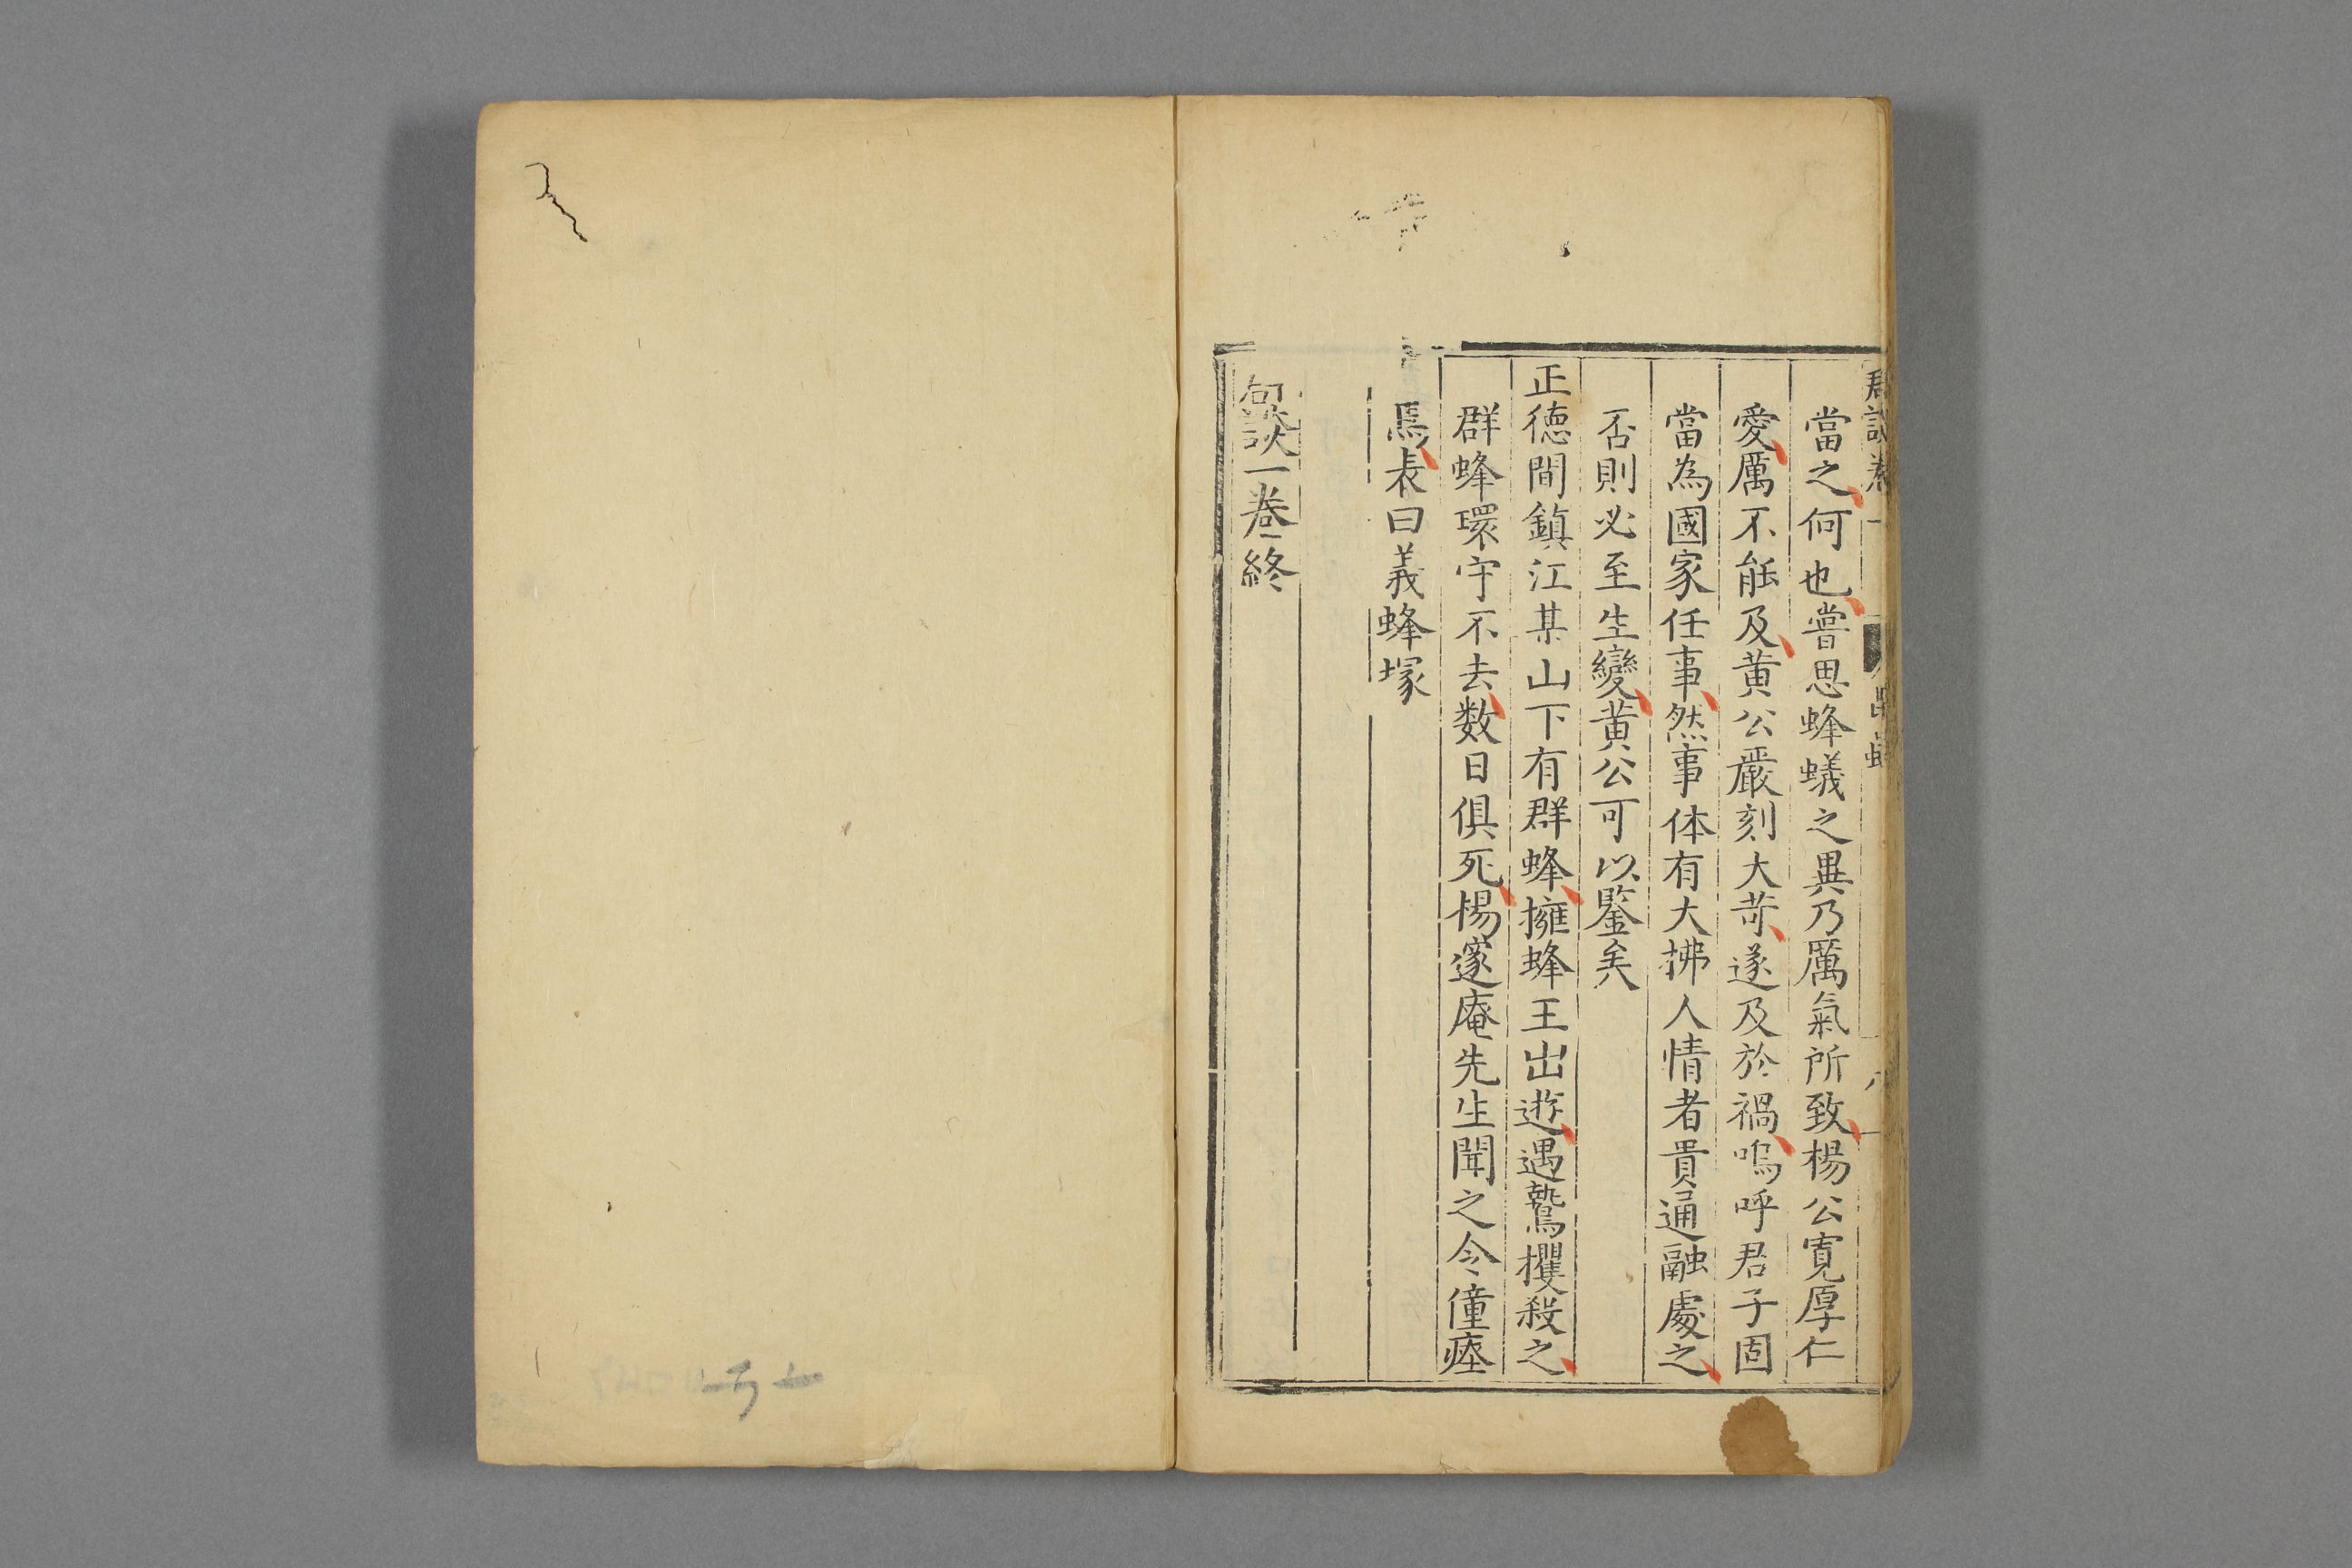 當之何也嘗思蜂蟻之異乃厲氣所致楊公寛厚仁
愛厲不能及黄公嚴刻大苛遂及於禍嗚呼君子固
當為國家任事然事体有大拂人情者貴通融處之
否則必至生變黄公可以鑒矣
正德間鎮江某山下有群蜂擁蜂王出遊遇鷙攫殺之
群蜂環守不去数日俱死楊邃庵先生聞之令僮瘞
焉表曰義蜂塚
談一卷終